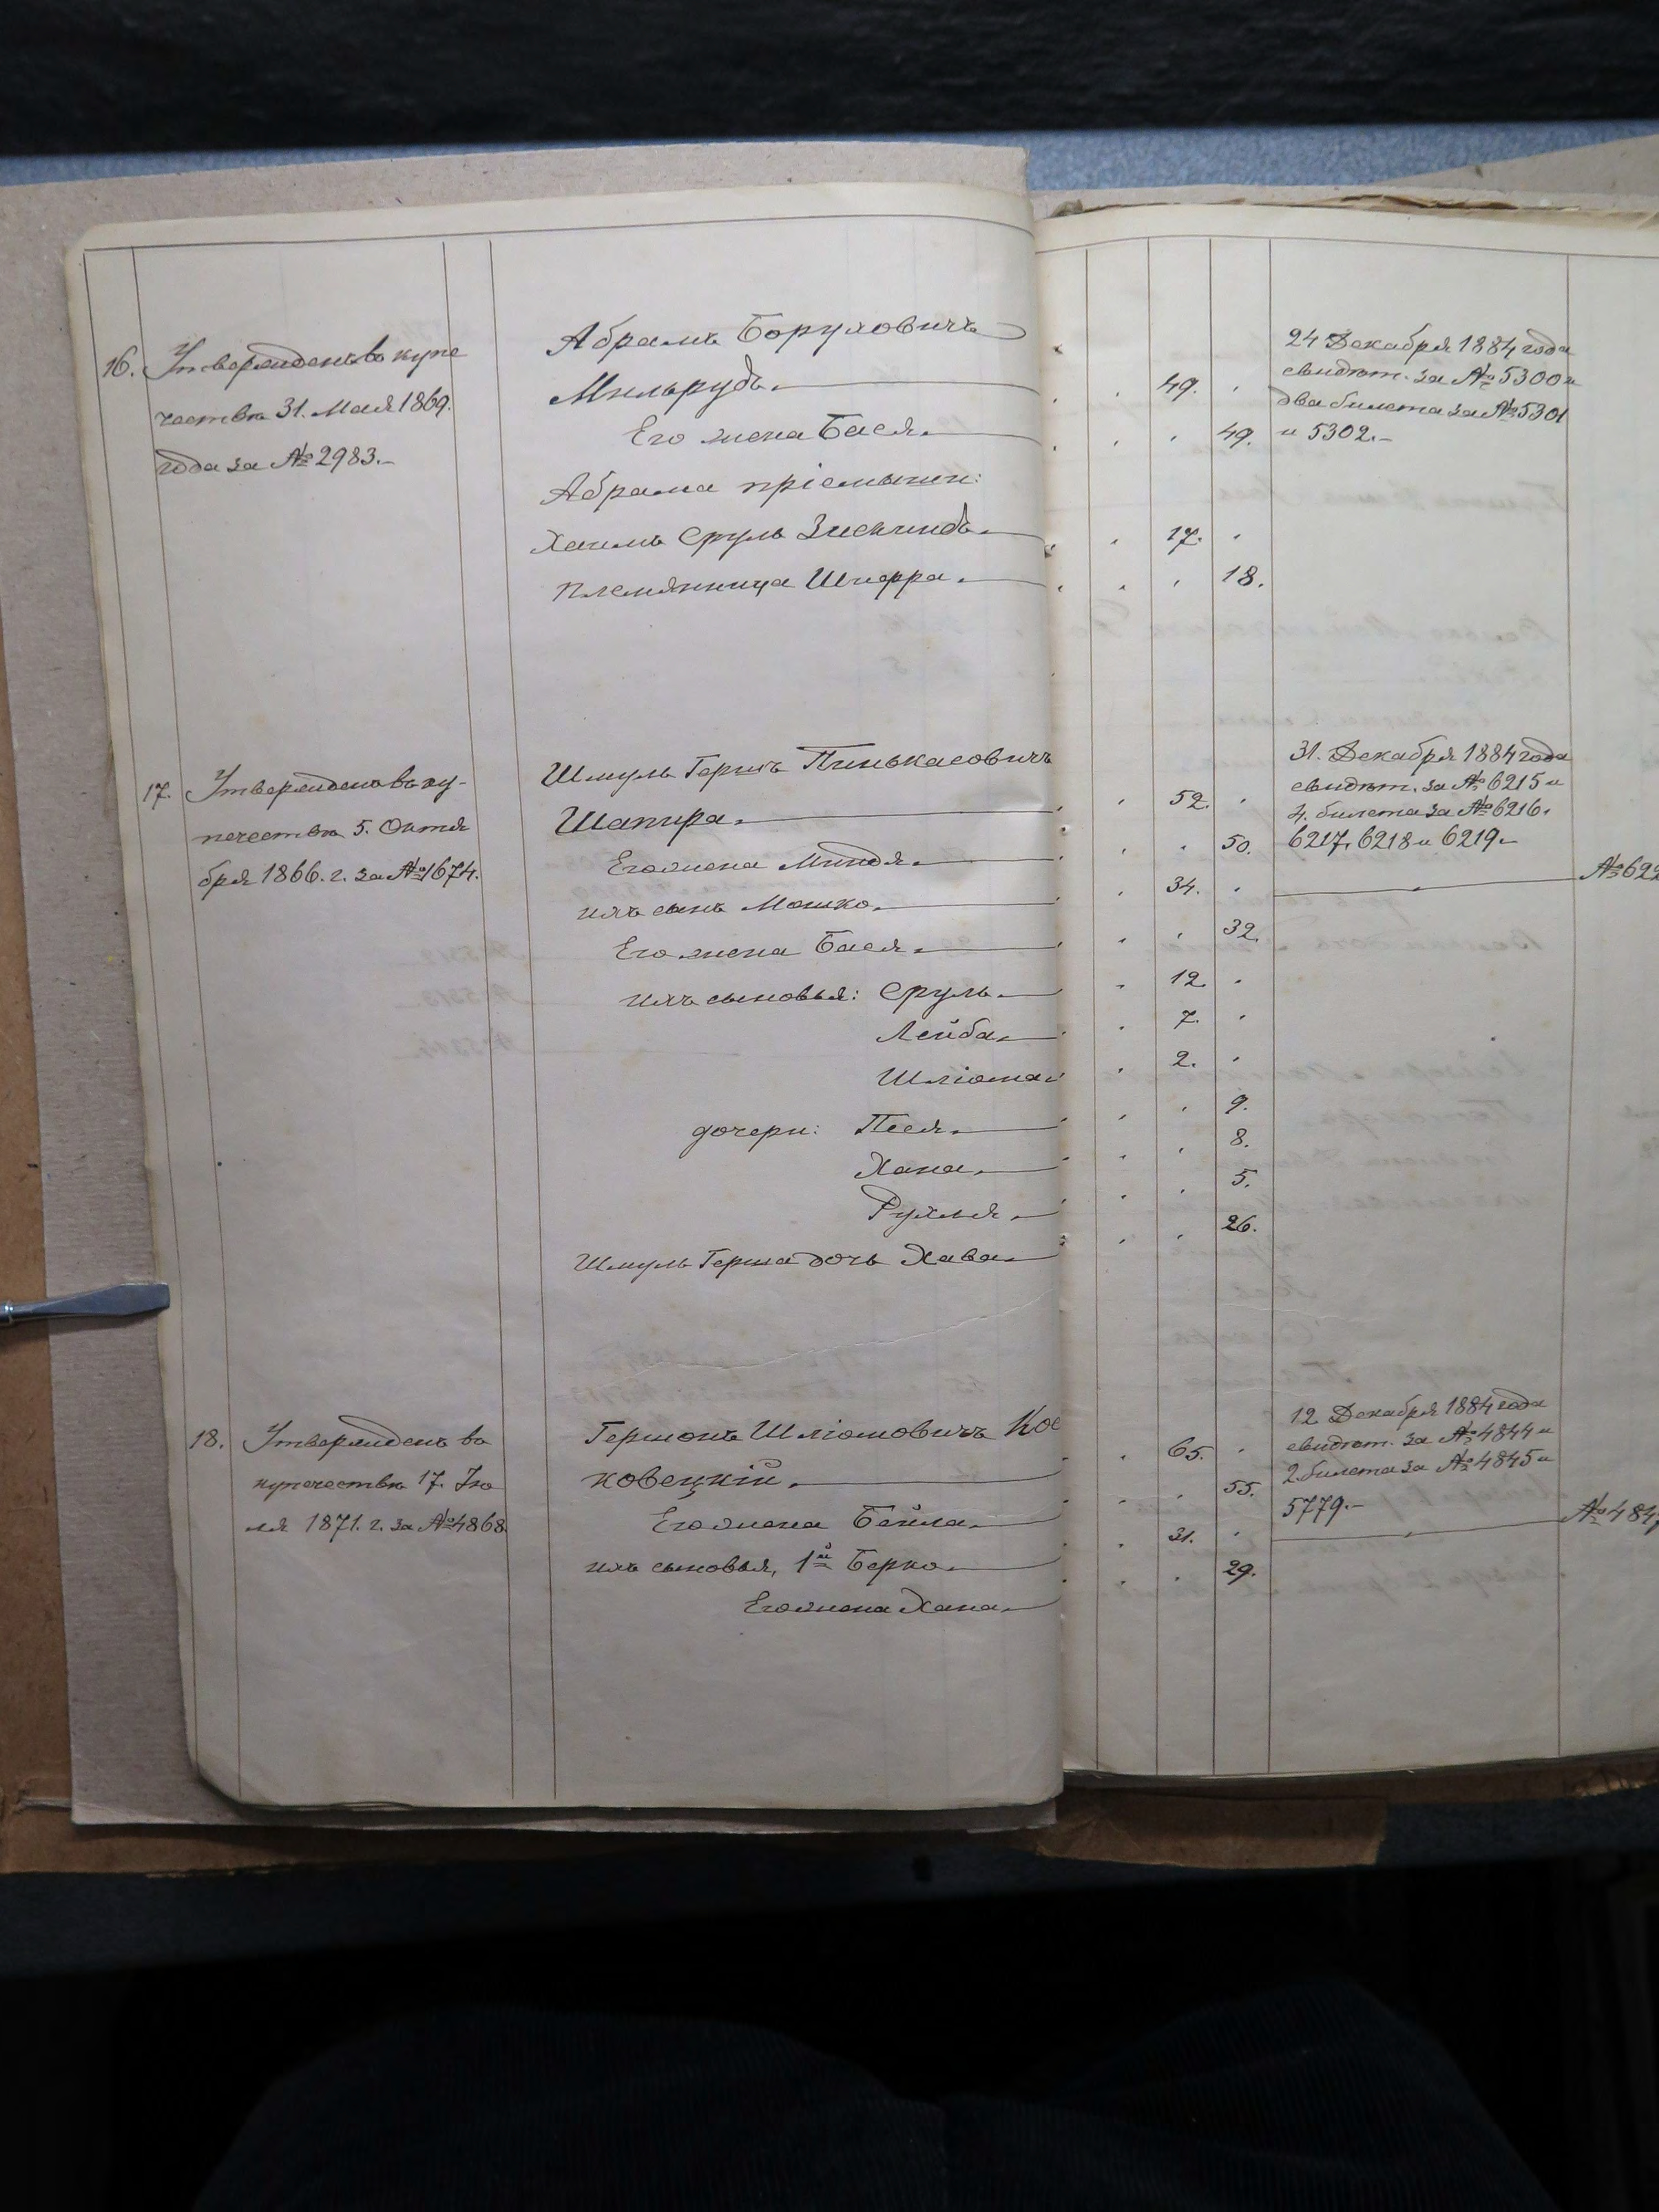 16. Утвержденъ въ купе
чество 31. Мая 1869.
года за № 2983.-
Абрамъ Боруховичъ
Мильрудъ.
Его жена Бася.
Абрама пріемыши:
Хаимъ Сруль Зискиндъ.
племянница Шифра.
49.
49.
17.
18.
24 Декабря 1884 года
свидѣт. за № 5300 и
два билета за № 5301
и 5302.-
17. Утвержденъ въ ку-
печество 5. Октя
бря 1866. г. за № 1674.
Шмуль Гершъ Пинькасовичъ
Шапира.
Его жена Миндя.
ихъ сынъ Мошко.
Его жена Бася.
ихъ сыновья: Сруль.
Лейба.
Шліома.
дочери: Песя.
Хана.
Рухля.
Шмуль Герша дочь Хава.
52.
50.
34.
32.
12.
7.
2.
9.
8.
5.
26.
31. Декабря 1884 года
свидѣт. за № 6215 и
4. билета за № 6216.
6217, 6218 и 6219.-
№ 622
18. Утвержденъ въ
купечество 17. Ію
ля 1871. г. за № 4868.
Гершонъ Шліомовичъ Кос
ковецкій.
Его жена Бейла.
ихъ сыновья, 1й Берко.
Его жена Хана.
65.
55.
31.
29.
12 Декабря 1884 года
свидѣт. за № 4844 и
2. билета за № 4845 и
5779.-
№ 484